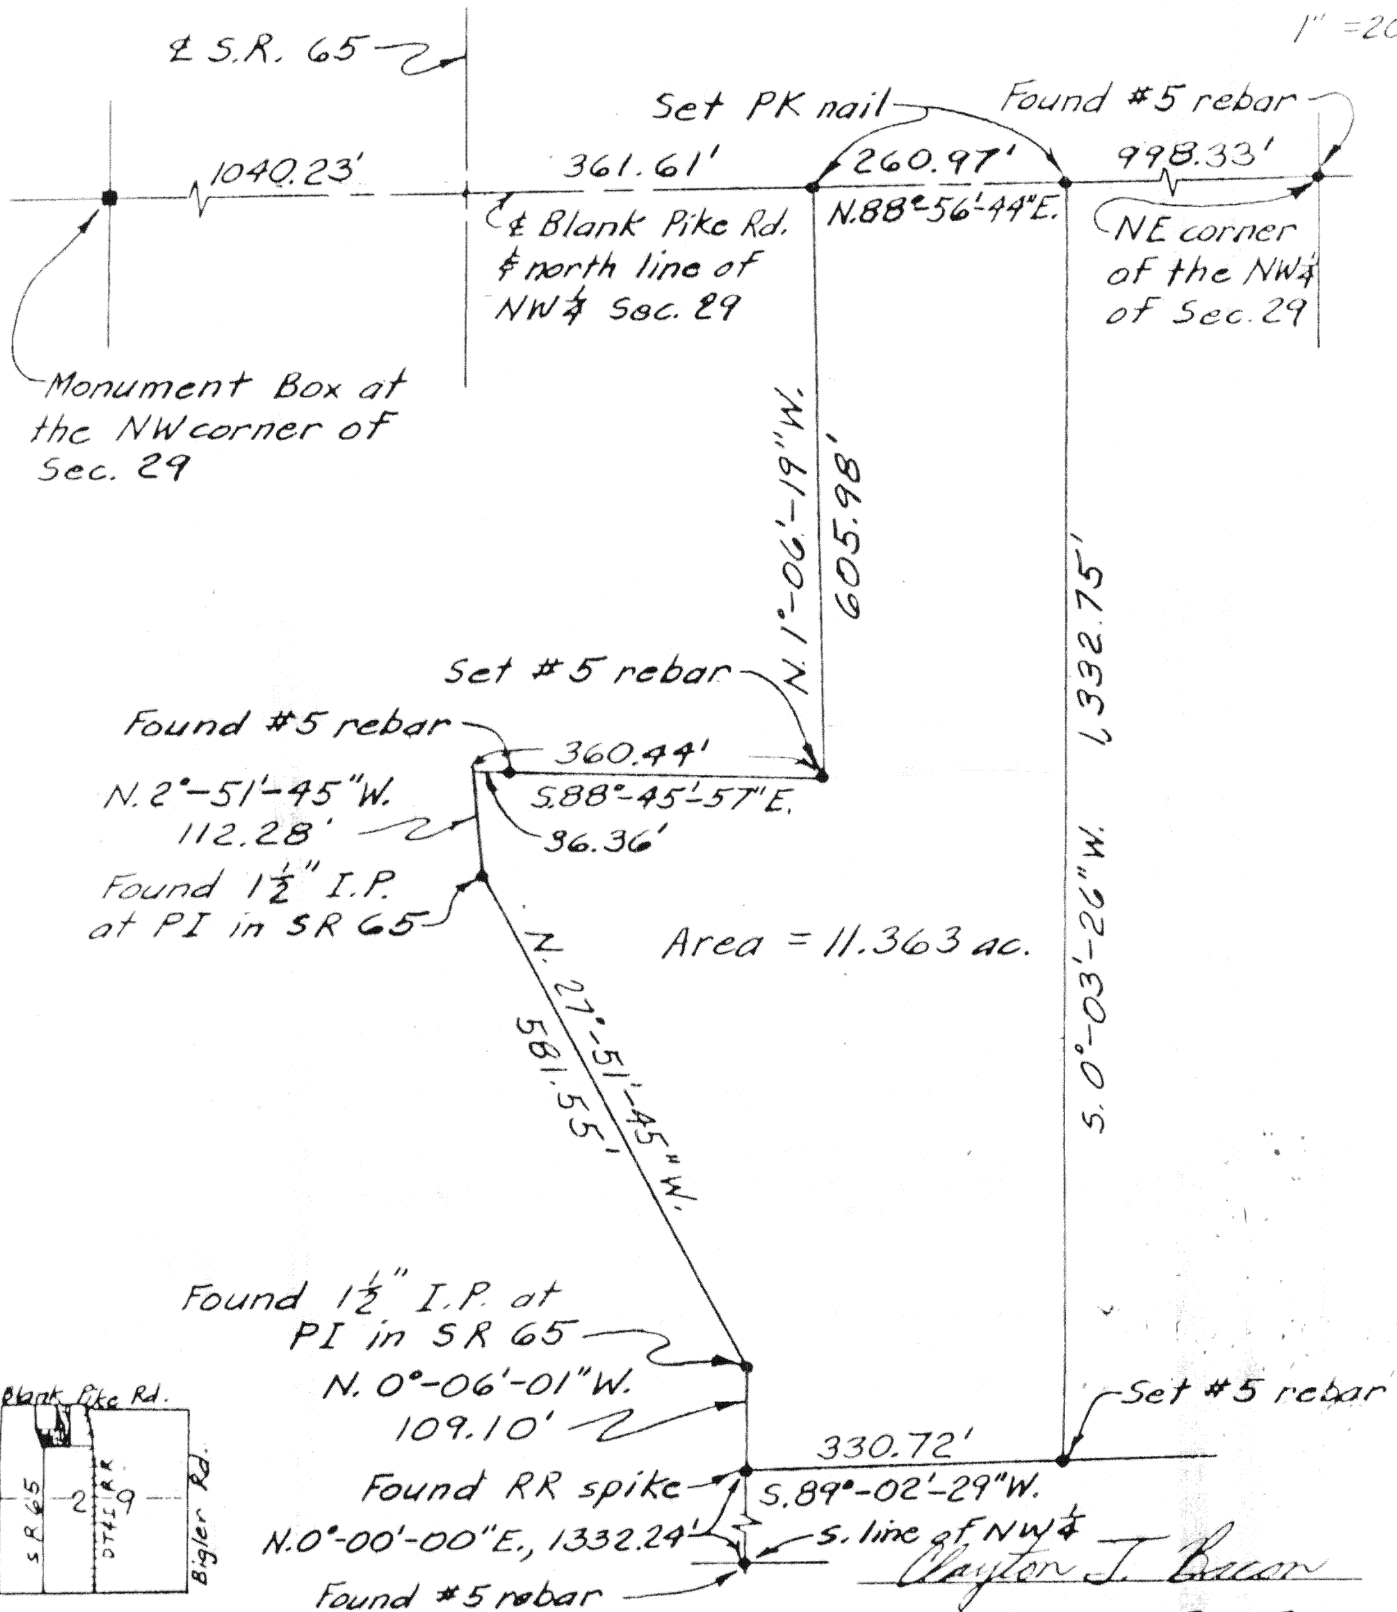 1" = 20
℄ S.R. 65
Set PK nail
Found #5 rebar
1040.23'
361.61'
260.97'
998.33'
N.88°-56'-44"E.
℄ Blank Pike Rd.
& north line of
NW¼ Sec. 29
NE corner
of the NW¼
of Sec. 29
Monument Box at
the NW corner of
Sec. 29
N.1°-06'-19"W.
605.98'
S.0°-03'-26"W. 1,332.75'
Set #5 rebar
Found #5 rebar
360.44'
N.2°-51'-45"W.
112.28'
S.88°-45'-57"E.
36.36'
Found 1½" I.P.
at PI in SR 65
Area = 11.363 ac.
N. 27°-51'-45"W.
581.55'
Found 1½" I.P. at
PI in SR 65
N. 0°-06'-01"W.
109.10'
Set #5 rebar
330.72'
Found RR spike
S.89°-02'-29"W.
N.0°-00'-00"E., 1332.24'
S. line of NW¼
Found #5 rebar
Clayton J. Bacon
Blank Pike Rd.
SR 65
29
DT&I RR
Bigler Rd.